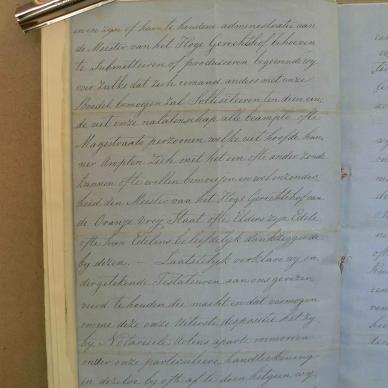 en in zyn of haar te houdene administratie aan
de Meister van het Hoge Gerechtshof behoeven
te Submitteeren of produceeren begeerende wy
over zulks dat zich iemand anders met onze
Boedel bemoeyen zal Solliciteeren ten dien einde
de uit onze nalatenschap alle beampte ofte
Magistraats perzoonen welke uit hoofde hunner
Ampten zich met het een ofte ander zoude
kunnen ofte willen bemoeyen en wel inzonderheid
den Meister van het Hoge Gerechtshof van
de Oranje Vrey Staat ofte Elders zyn Edele
ofte hun Edelens beleefdelyk dankzeggende
by dezen. — Laatstelyk verklaare wy on
dergetekende Testateuren aan ons gereser
veerd te houden die macht en dat vermogen
om me deze onze Uiterste dispositie het zy
by Notarieele Actens aparte memorien
onder onze particuliere handtekening
in dezelve by ofte af te doen hetgeen wy